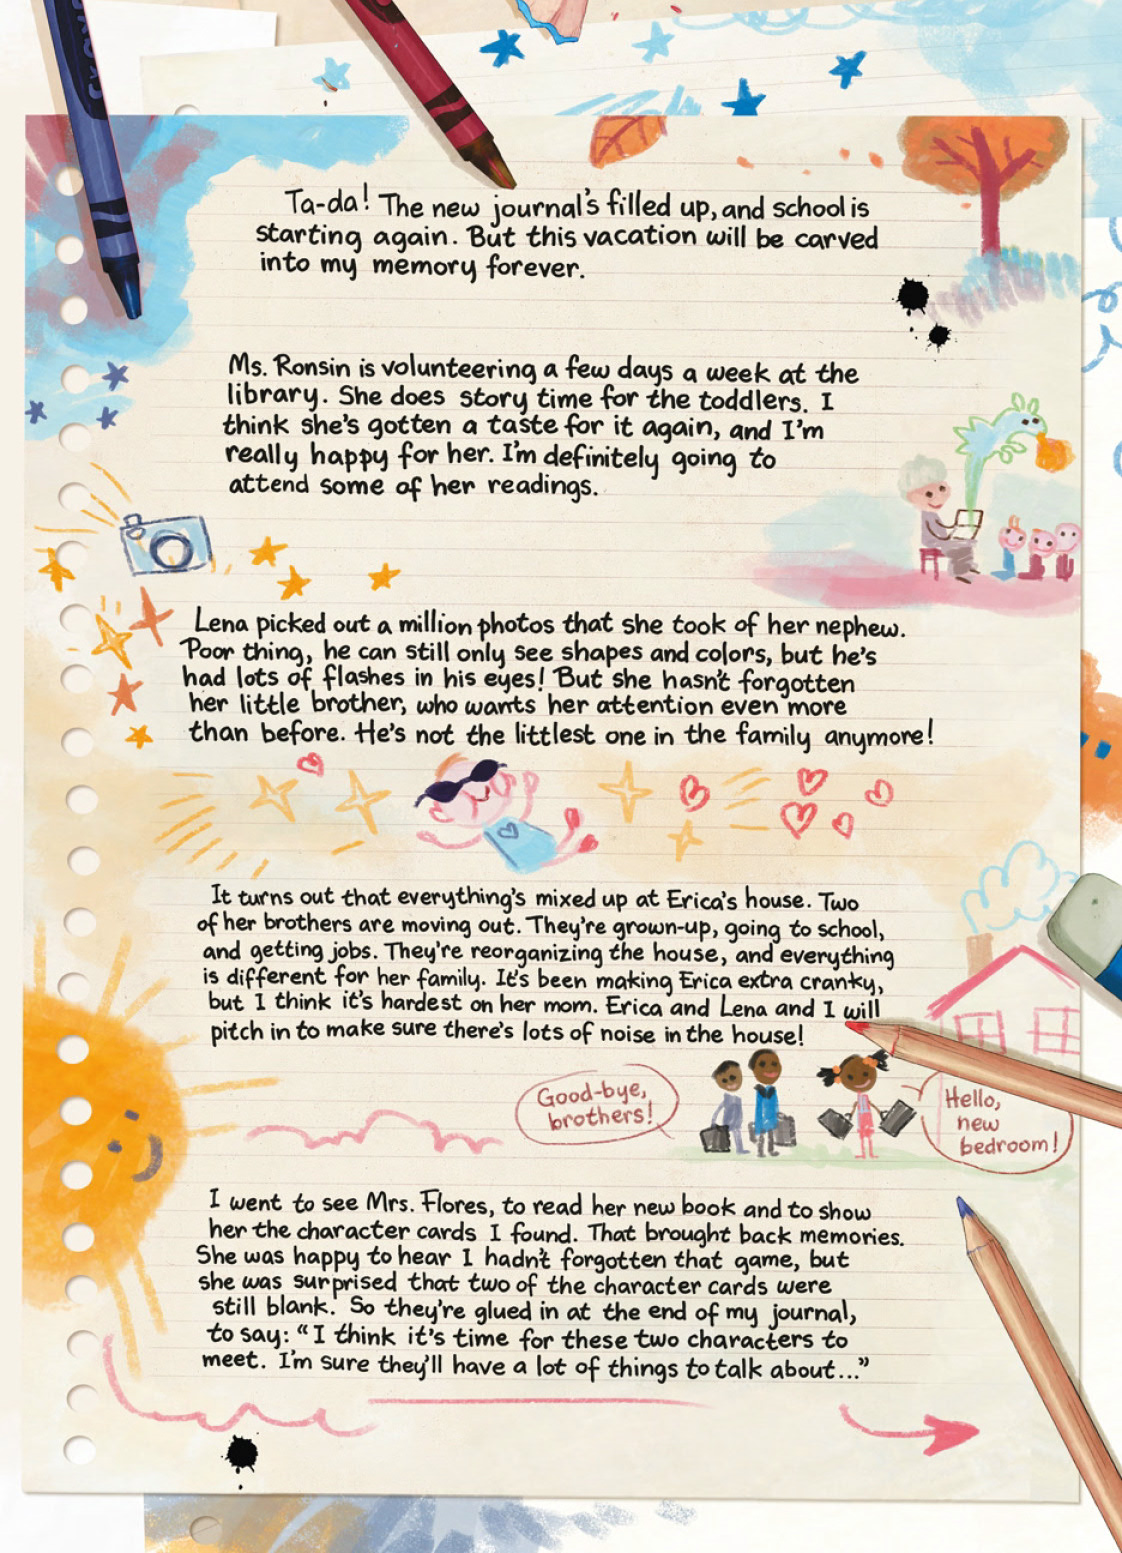 Ta-da! The new journal's filled up, and school is
starting again. But this vacation will be carved
into my memory forever.
Ms. Ronsin is volunteering a few days a week at the
library. She does story time for the toddlers. I
think she's gotten a taste for it again, and I'm
really happy for her. I'm definitely going to
attend some of her readings.
Lena picked out a million photos that she took of her nephew.
Poor thing, he can still only see shapes and colors, but he's
had lots of flashes in his eyes! But she hasn't forgotten
her little brother, who wants her attention even more
than before. He's not the littlest one in the family anymore!
It turns out that everything's mixed up at Erica's house. Two
of her brothers are moving out. They're grown-up, going to school,
and getting jobs. They're reorganizing the house, and everything
is different for her family. It's been making Erica extra cranky,
but I think it's hardest on her mom. Erica and Lena and I will
pitch in to make sure there's lots of noise in the house!
Good-bye,
brothers!
Hello,
new
bedroom!
I went to see Mrs. Flores, to read her new book and to show
her the character cards I found. That brought back memories.
She was happy to hear I hadn't forgotten that game, but
she was surprised that two of the character cards were
still blank. So they're glued in at the end of my journal,
to say: "I think it's time for these two characters to
meet. I'm sure they'll have a lot of things to talk about..."